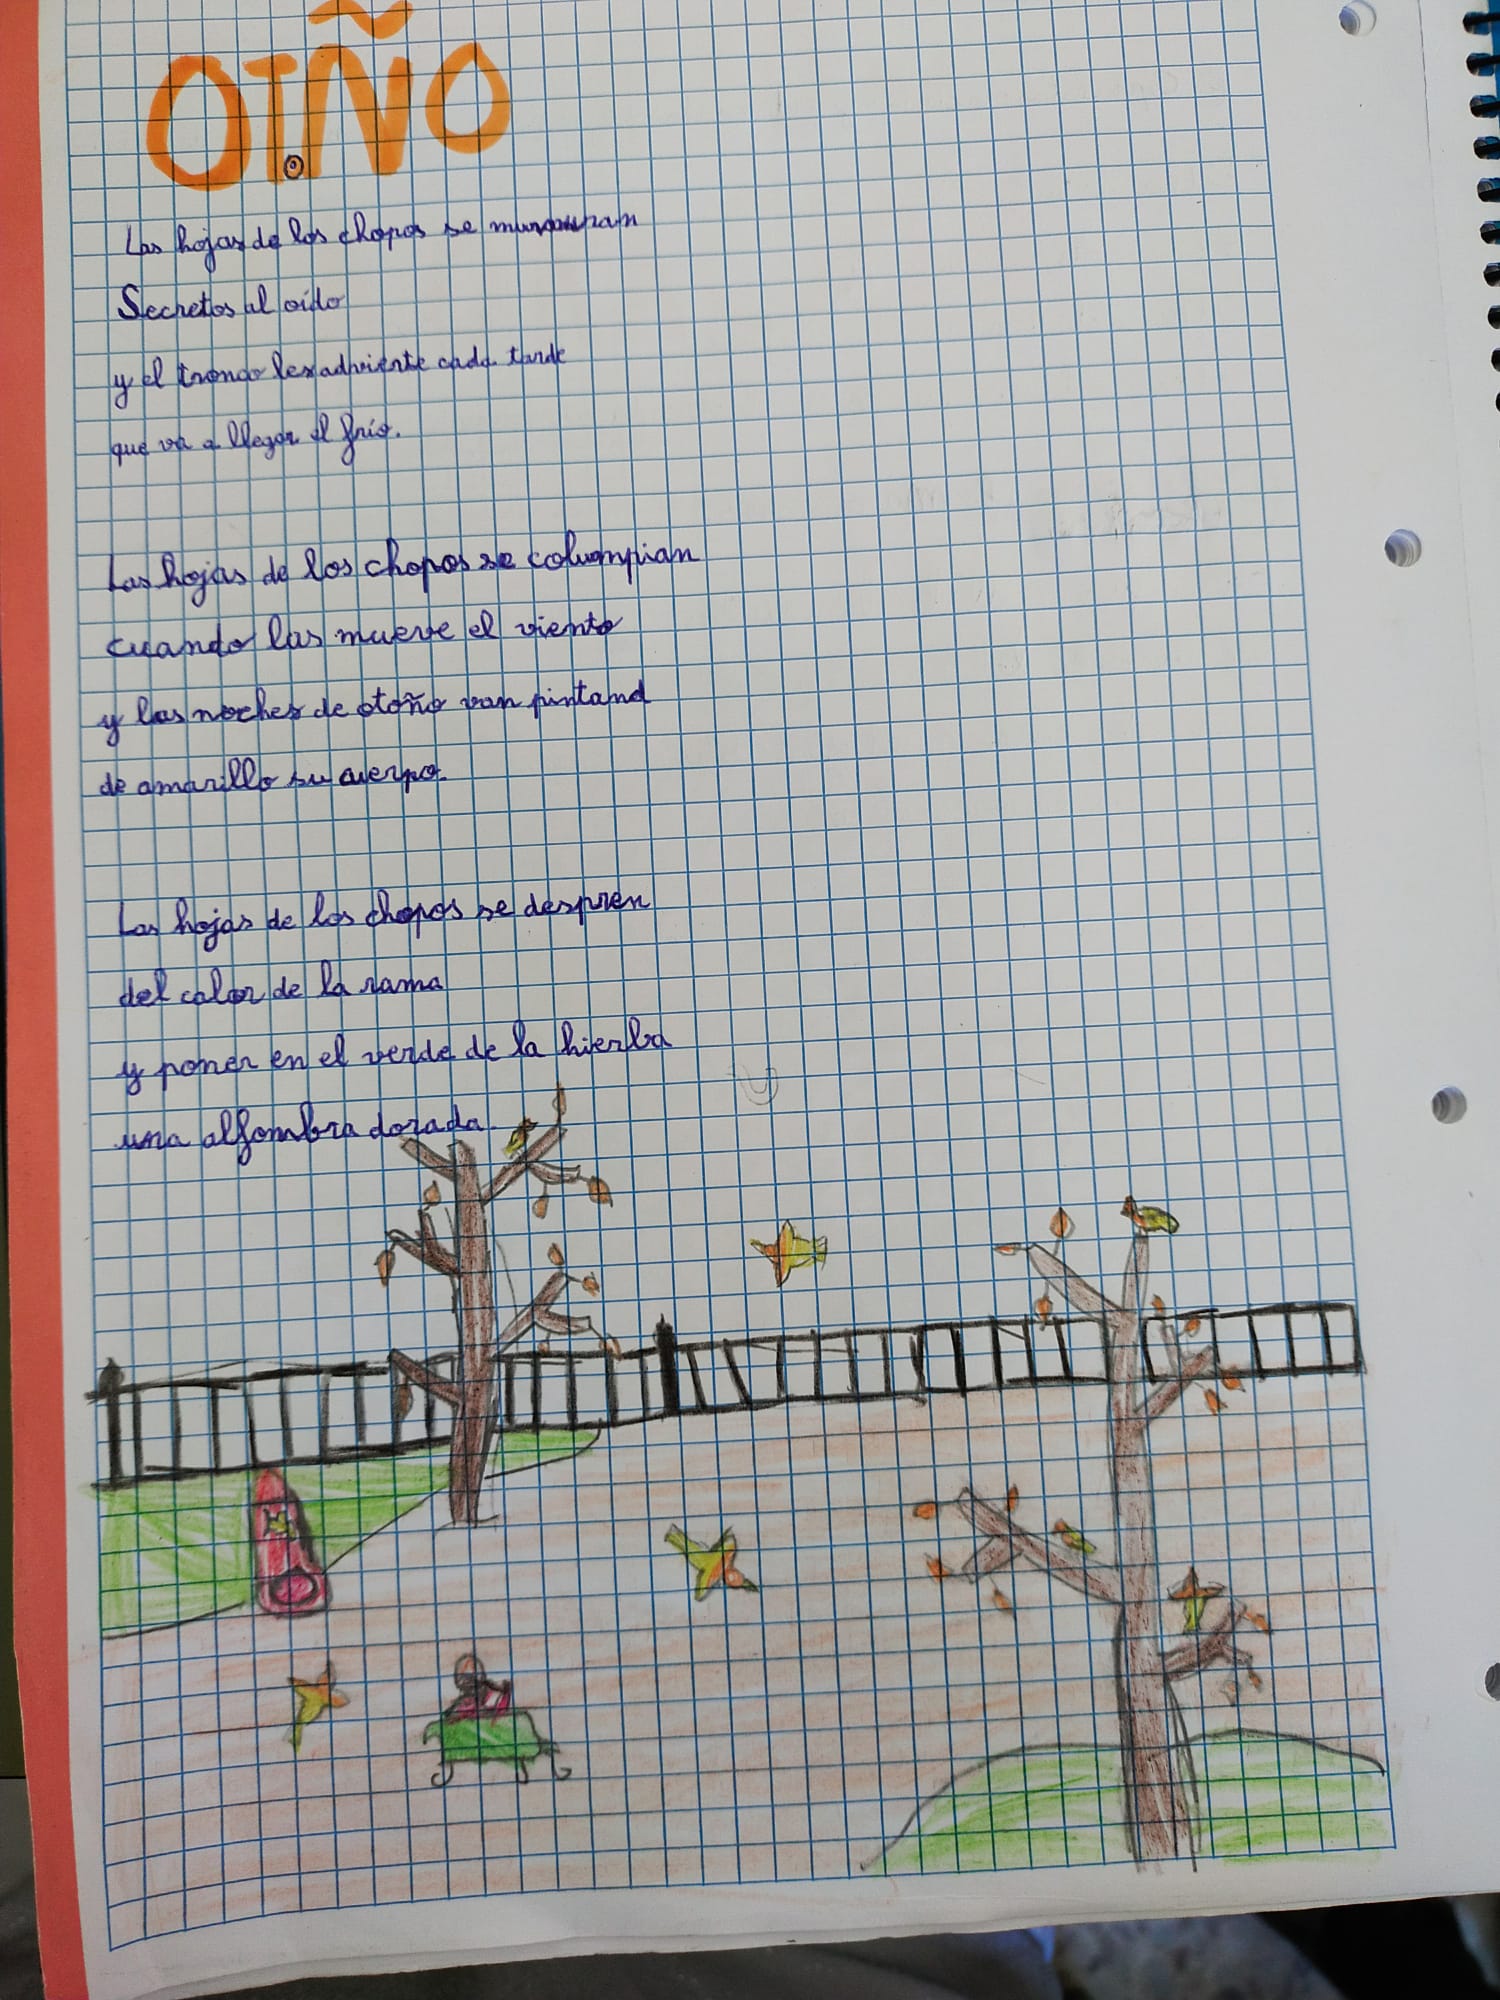 OTÑO
Las hojas de los chopos se murmuran
Secretos al oido
y el tronco les adviente cada tarde
que va a llegar el frío.
Las hojas de los chopos se columpian
cuando las mueve el viento
y las noches de otoño van pintand
de amarillo su cuerpo.
Las hojas de los chopos se despren
del calor de la rama
y poner en el verde de la hierba
una alfombra dorada.